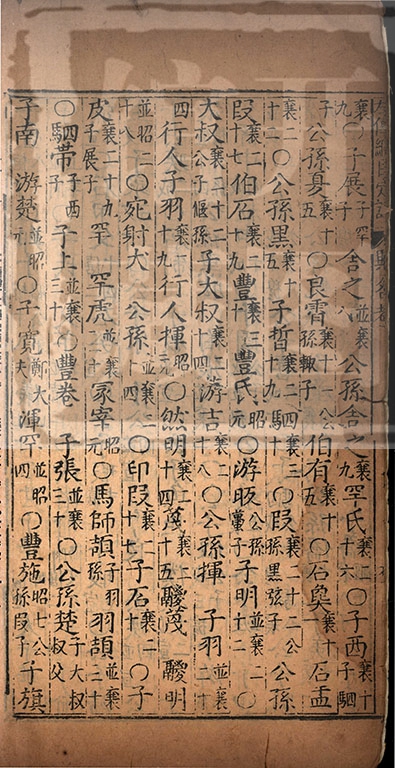 襄九〇子展子罕子舍之並襄八公孫舍之襄九罕氏襄二十六〇子西襄十子駟子
公孫夏襄十五〇良霄襄十一公孫輒子伯有襄十五〇石㚟襄十一石盂
襄二十二〇公孫黑襄十五子晳襄二十九駟〇段襄二十二公孫黑弦子公孫
段襄二十七伯石襄二十九豐襄三十豐氏昭元〇游眅公孫蠆子子明並襄二十二〇
大叔襄二十二公子偃孫子大叔襄二十四游吉襄二十八〇公孫揮子羽並襄二十
四行人子羽襄二十九行人揮昭元〇然明襄二十四蔑襄二十五鬷蔑鬷明
並昭二十八〇宛射犬公孫襄二十四〇印段襄二十七子石襄二十二〇子
皮襄二十九子展子罕罕虎並襄三十冢宰昭元〇馬師頡子羽孫羽頡並襄三十
〇駟帶子西子子上並襄三十〇豐卷子張並襄三十〇公孫楚子大叔叔父
子南游楚並昭元〇子寬鄭大夫渾罕並昭四〇豐施昭七公孫段子子旗